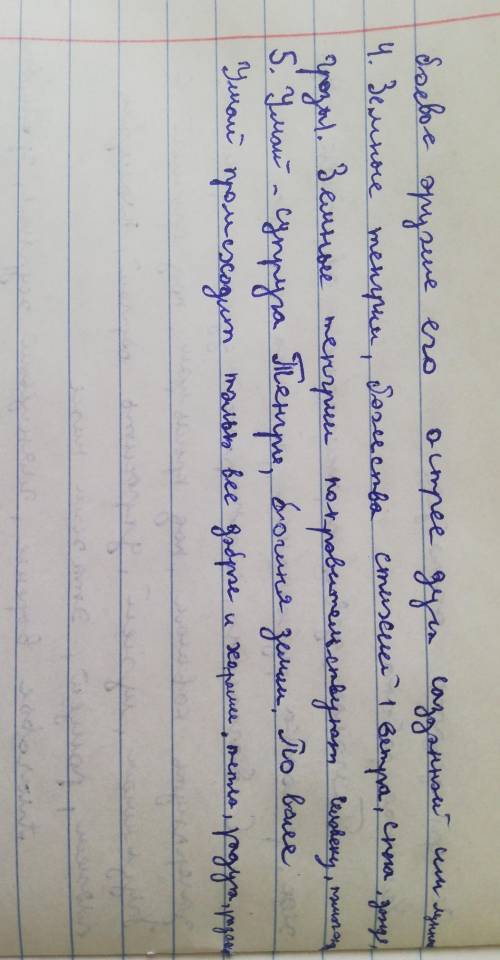 боевое оружие его острее духа созданной им луны
4. Земные тенгрии, божества стихий, ветра, снега, дождя,
грозы. Земные тенгрии покровительствуют человеку,
5. Умай - супруга Тенгри, богиня земли. По воле
Умай происходит только все доброе и хорошее, тепло, радуга,